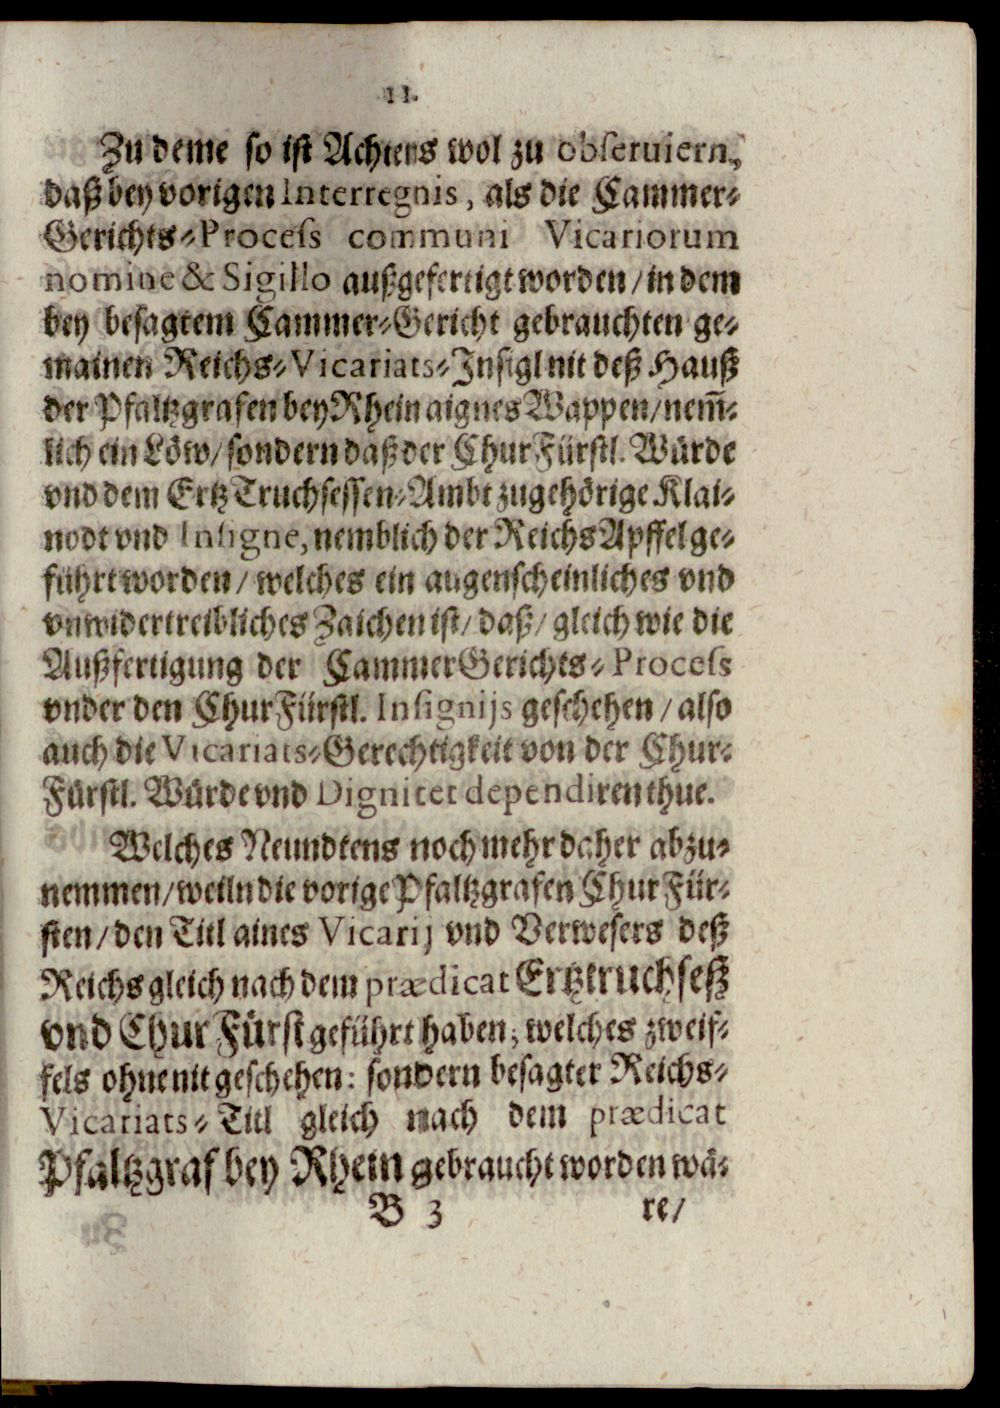 11.
Zu deme so ist Achtens wol zu observiern,
daß bey vorigen Interregnis, als die Cammer-
Gerichts-Process communi Vicariorum
nomine & Sigillo außgefertigt worden / in dem
bey besagtem Cammer-Gericht gebrauchten ge-
mainen Reichs-Vicariats-Insigl nit deß Hauß
der Pfaltzgrafen bey Rhein aignes Wappen / nem̃-
lich ein Löw / sondern daß der Chur Fürstl. Würde
vnd dem Ertz Truchsessen-Ambt zugehörige Klai-
nodt vnd Insigne, nemblich der Reichs Apffel ge-
führt worden / welches ein augenscheinliches vnd
vnwidertreibliches Zaichen ist / daß / gleich wie die
Außfertigung der Cammer Gerichts-Process
vnder den Chur Fürstl. Insignijs geschehen / also
auch die Vicariats-Gerechtigkeit von der Chur-
Fürstl. Würde vnd Dignitet dependiren thue.
Welches Neundtens noch mehr daher abzu-
nemmen / weiln die vorige Pfaltzgrafen Chur Für-
sten / den Titl aines Vicarij vnd Verwesers deß
Reichs gleich nach dem prædicat Ertztruchseß
vnd Chur Fürst geführt haben, welches zweif-
fels ohne nit geschehen: sondern besagter Reichs-
Vicariats-Titl gleich nach dem prædicat
Pfaltzgraf bey Rhein gebraucht worden wä-
B 3 re /